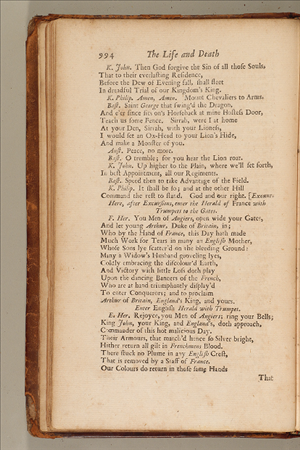 394 The Life and Death
K. John. Then God forgive the Sin of all those Souls,
That to their everlasting Residence,
Before the Dew of Evening fall, shall fleet
In dreadful Trial of our Kingdom's King.
K. Philip. Amen, Amen. Mount Chevaliers to Arms.
Bast. Saint George that swing'd the Dragon,
And e'er since sits on's Horseback at mine Hostess Door,
Teach us some Fence. Sirrah, were I at home
At your Den, Sirrah, with your Lioness,
I would set an Ox-Head to your Lion's Hide,
And make a Monster of you.
Aust. Peace, no more.
Bast. O tremble; for you hear the Lion roar.
K. John. Up higher to the Plain, where we'll set forth,
In best Appointment, all our Regiments.
Bast. Speed then to take Advantage of the Field.
K. Philip. It shall be so; and at the other Hill
Command the rest to stand. God and our right. [Exeunt.
Here, after Excursions, enter the Herald of France with
Trumpets to the Gates.
F. Her. You Men of Angiers, open wide your Gates,
And let young Arthur, Duke of Britain, in;
Who by the Hand of France, this Day hath made
Much Work for Tears in many an English Mother,
Whose Sons lye scatter'd on the bleeding Ground:
Many a Widow's Husband groveling lyes,
Coldly embracing the discolour'd Earth,
And Victory with little Loss doth play
Upon the dancing Banners of the French,
Who are at hand triumphantly display'd
To enter Conquerors; and to proclaim
Arthur of Britain, England's King, and yours.
Enter English Herald with Trumpet.
E. Her. Rejoyce, you Men of Angiers; ring your Bells;
King John, your King, and England's, doth approach,
Commander of this hot malicious Day.
Their Armours, that march'd hence so Silver bright,
Hither return all gilt in Frenchmens Blood.
There stuck no Plume in any English Crest,
That is removed by a Staff of France.
Our Colours do return in those same Hands
That